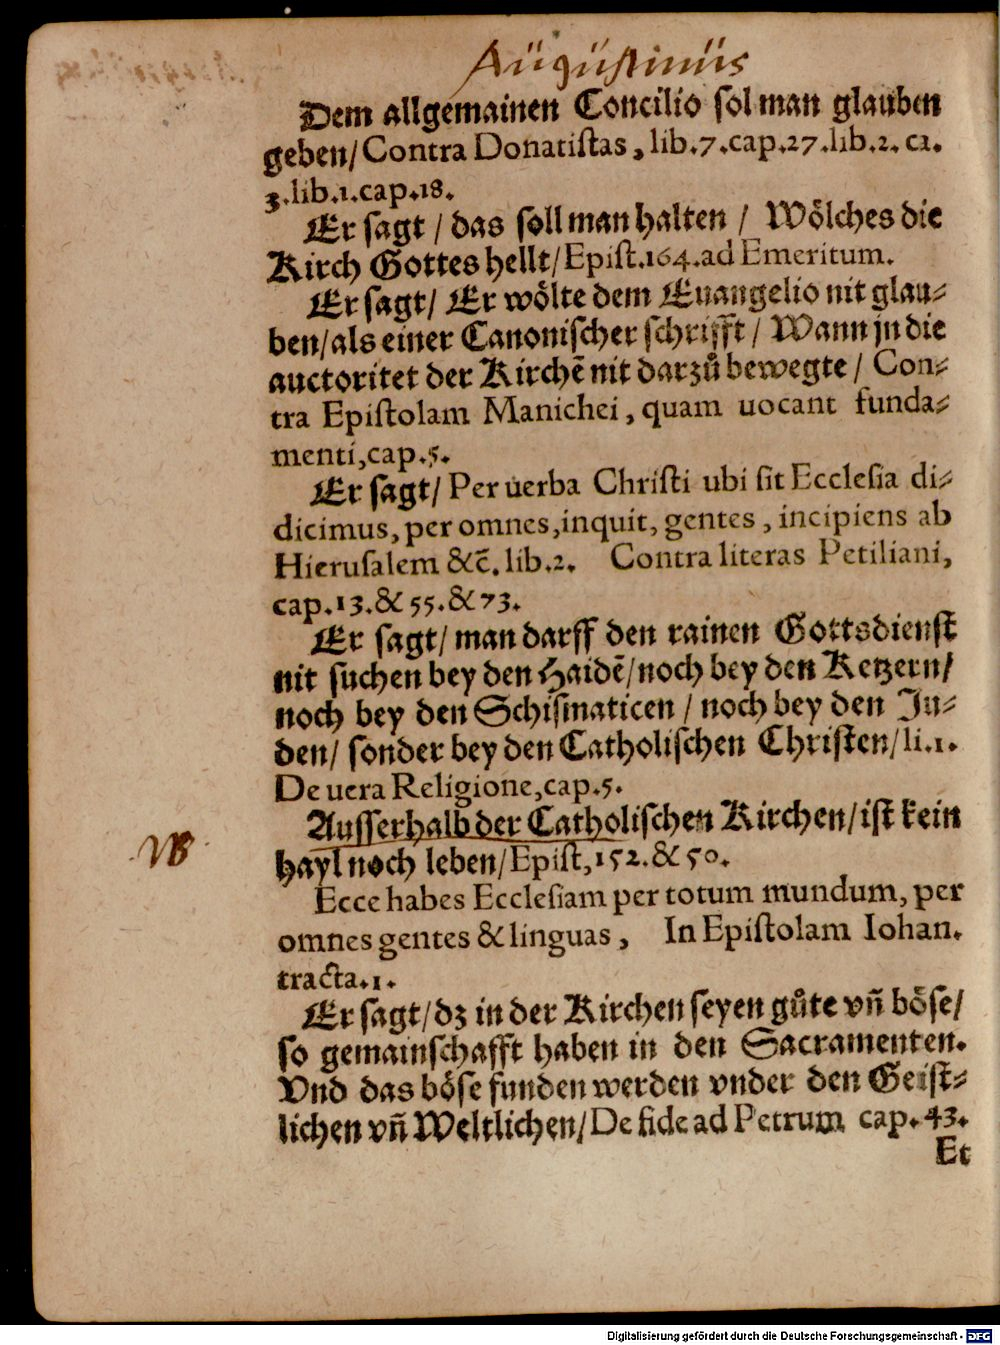 Augustinus
Dem allgemainen Concilio sol man glauben
geben/ Contra Donatistas, lib.7.cap.27.lib.2. ca.
3.lib.1.cap.18.
Er sagt / das soll man halten / Wölches die
Kirch Gottes hellt/ Epist.164.ad Emeritum.
Er sagt/ Er wölte dem Euangelio nit glau⸗
ben/als einer Canonischer schrifft / Wann jn die
auctoritet der Kirchẽ nit darzů bewegte / Con⸗
tra Epistolam Manichei, quam uocant funda⸗
menti,cap.5.
Er sagt/ Per uerba Christi ubi sit Ecclesia di⸗
dicimus, per omnes,inquit, gentes, incipiens ab
Hierusalem &c̃. lib.2. Contra literas Petiliani,
cap.13.& 55.& 73.
Er sagt/ man darff den rainen Gottsdienst
nit suchen bey den Haidẽ/noch bey den Ketzern/
noch bey den Schismaticen / noch bey den Ju⸗
den/ sonder bey den Catholischen Christen/li.1.
De uera Religione,cap.5.
Ausserhalb der Catholischen Kirchen/ist kein
hayl noch leben/ Epist,152.& 50.
NB
Ecce habes Ecclesiam per totum mundum, per
omnes gentes & linguas, In Epistolam Iohan.
tracta.1.
Er sagt/dz in der Kirchen seyen gůte vñ böse/
so gemainschafft haben in den Sacramenten.
Vnd das böse funden werden vnder den Geist⸗
lichen vñ Weltlichen/ De fide ad Petrum cap.43.
Et
Digitalisierung gefördert durch die Deutsche Forschungsgemeinschaft - DFG